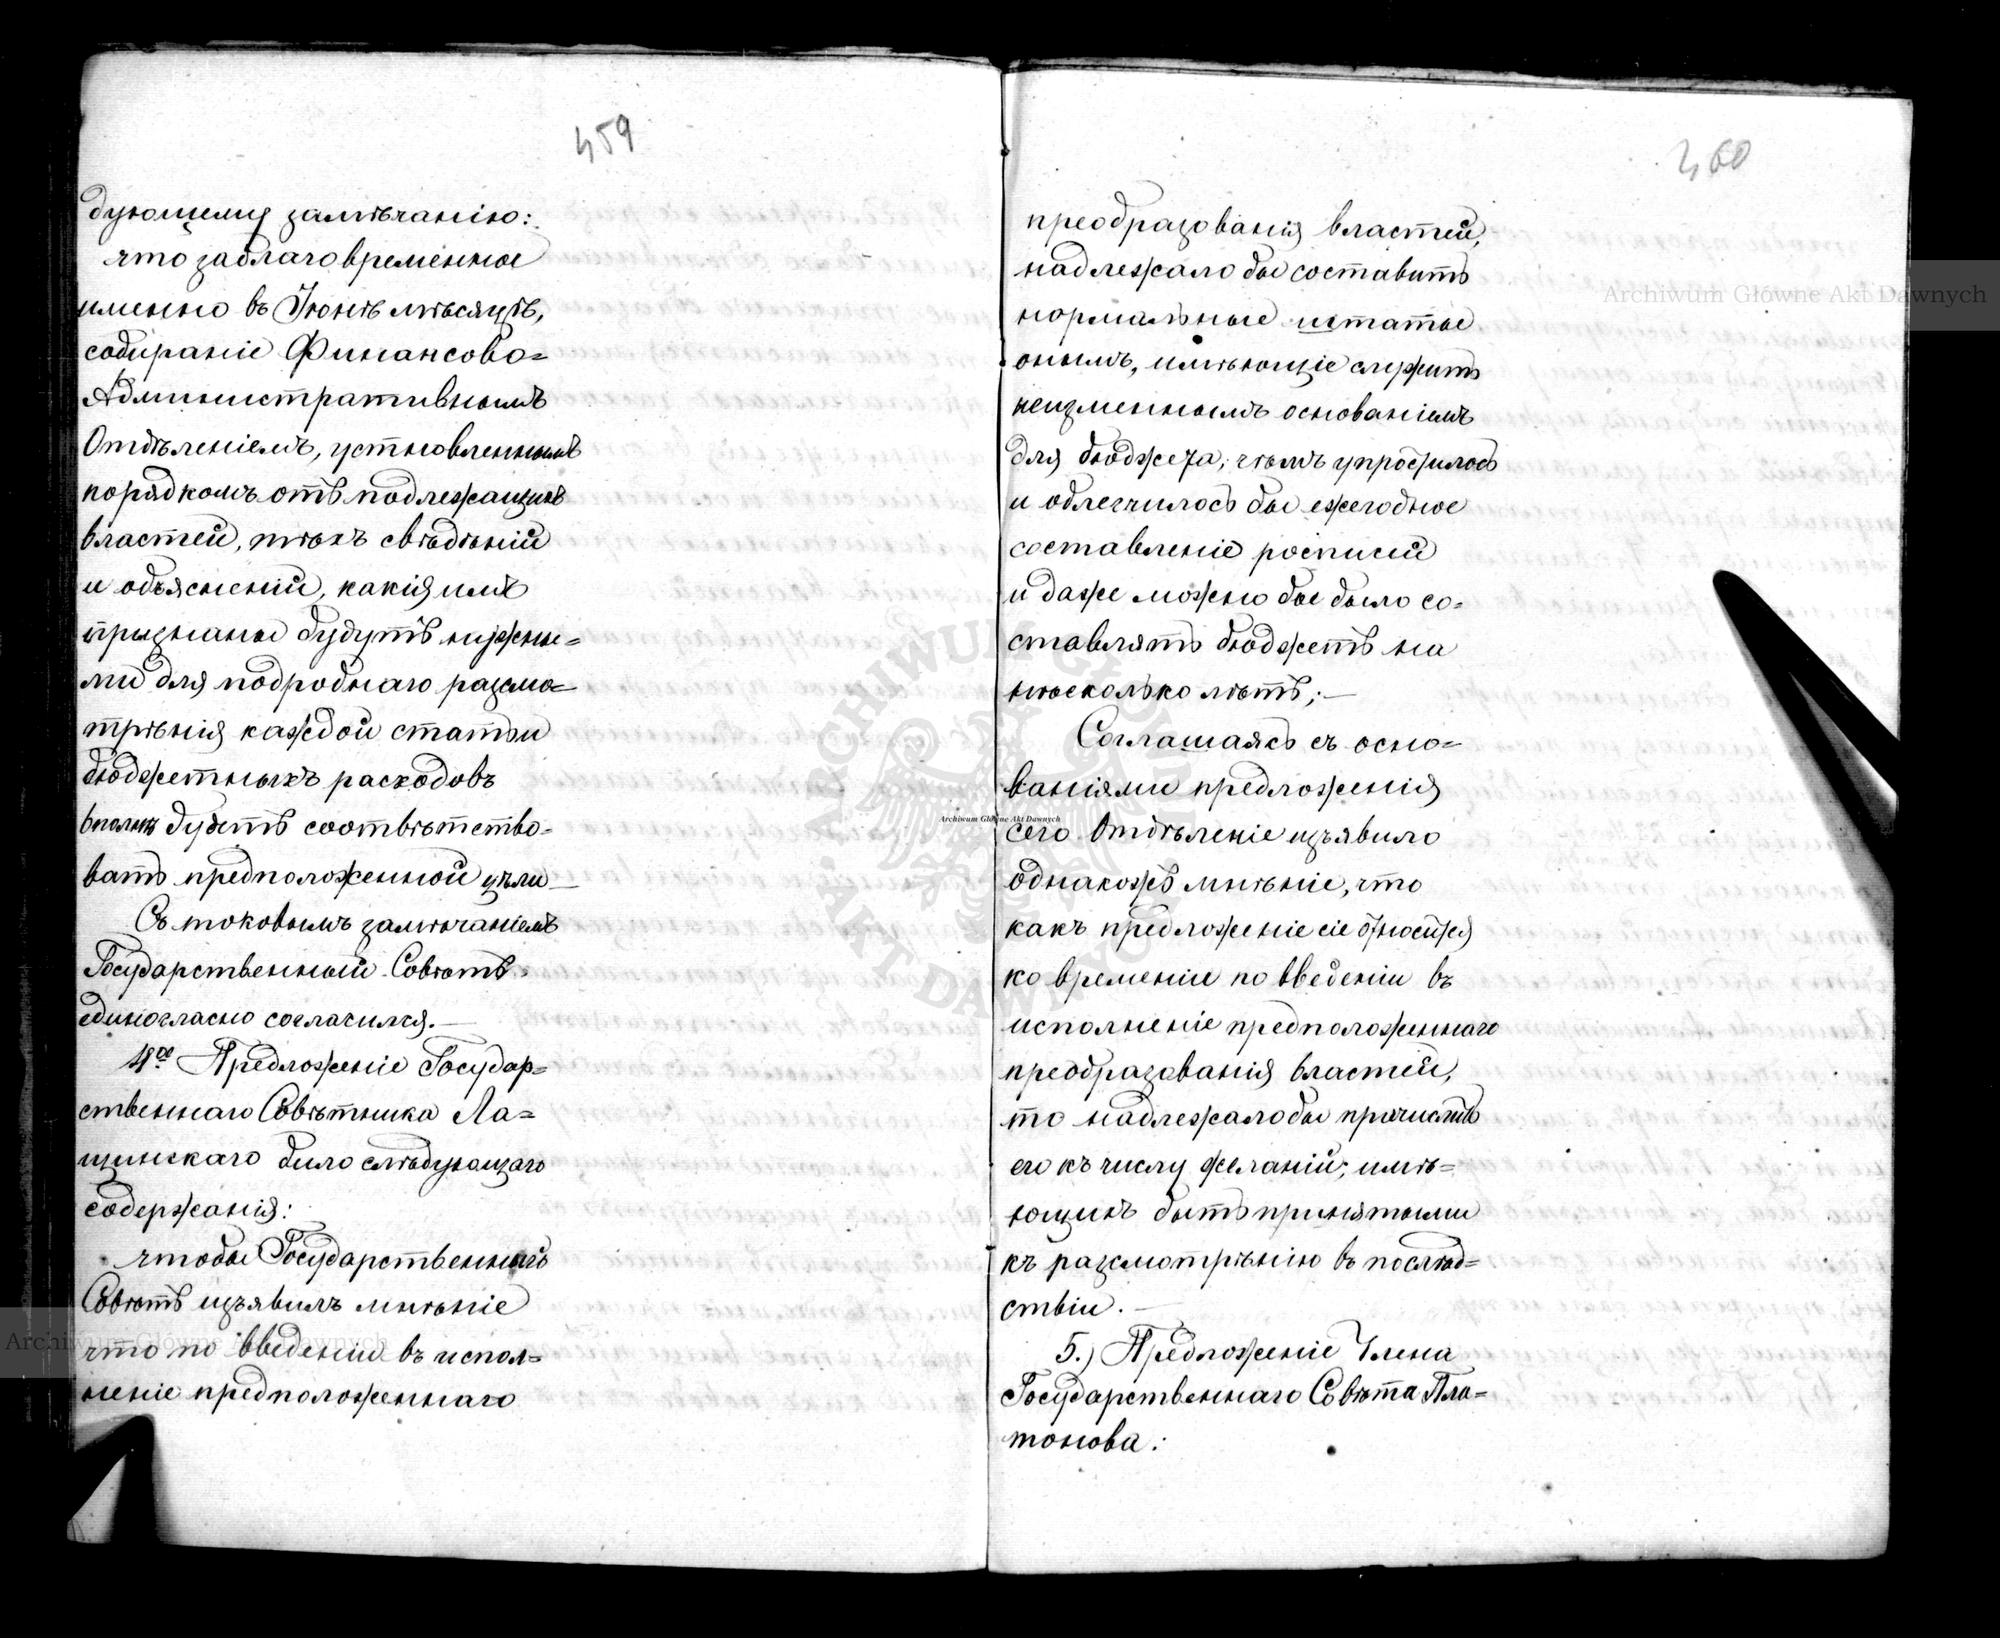 459
дующему замѣчанію:
что заблаговременное
именно въ Іюнѣ мѣсяцѣ,
собираніе Финансово=
Административнымъ
Отдѣленіемъ, устновленнымъ
порядкомъ отъ подлежащихъ
властей, тѣхъ свѣдѣній
и объясненій, какія имъ
признаны будутъ нужны=
ми для подробнаго разсмо=
трѣнія каждой статьи
бюджетныхъ расходовъ
вполнѣ будетъ соотвѣтство=
вать предположенной цѣли —
Съ токовымъ замѣчаніемъ
Государственный Совѣтъ
единогласно согласился. —
4ое Предложеніе Государ=
ственнаго Совѣтника Ла=
щинскаго било слѣдующаго
содержанія:
чтобы Государственный
Совѣтъ изъявилъ мнѣніе
что по введеніи въ испол=
неніе предположеннаго
460
преобразованія властей,
надлежало бы составить
нормальные штаты
онымъ, имѣющіе служить
неизменнымъ основаніемъ
для бюджета; чѣмъ упростилось
и облегчилось бы ежегодное
составленіе росписей
и даже можно бы было со=
ставлять бюджетъ на
нѣсколько лѣтъ; —
Соглашаясь съ осно=
ваніями предложенія
сего Отдѣленіе изъявило
однакожъ мнѣніе, что
какъ предложеніе сіе относится
ко временіи по введеніи въ
исполненіе предположеннаго
преобразованія властей,
то надлежало бы причислить
его къ числу желаній; имѣ=
ющихъ быть принятыми
къ разсмотрѣнію въ послѣд=
ствіи. —
5.) Предложеніе Члена
Государственнаго Совѣта Пла=
тонова:
Archiwum Główne Akt Dawnych
Archiwum Główne Akt Dawnych
Archiwum Główne Akt Dawnych
ARCHIWUM GŁÓWNE AKT DAWNYCH